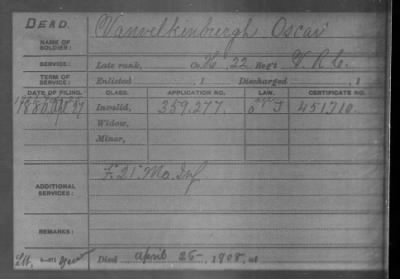 DEAD.
NAME OF SOLDIER: Vanvelkinburgh Oscar
SERVICE: Late rank, Co. K, 22 Reg't V. R. C.
TERM OF SERVICE: Enlisted , 1 Discharged , 1
DATE OF FILING. CLASS. APPLICATION NO. LAW. CERTIFICATE NO.
1880 27 Invalid, 359.277 451710
Widow,
Minor,
ADDITIONAL SERVICES: F. 21" Mo. Inf
REMARKS:
Died April 25-, 1908, at